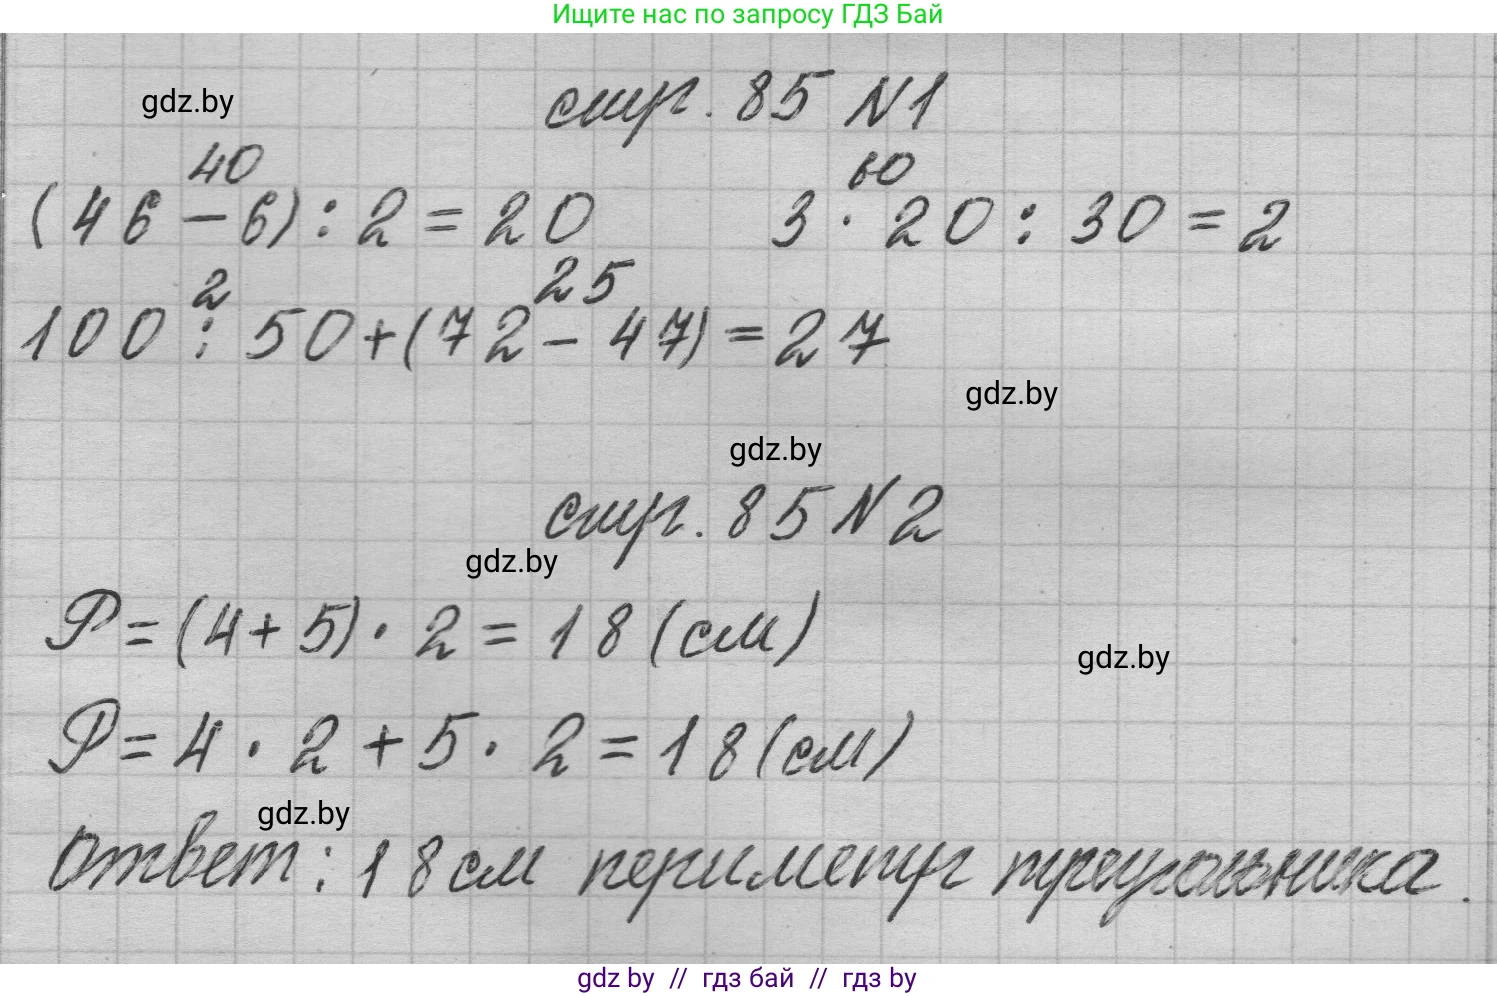 Ищите нас по запросу ГДЗ Бай
gdz.by
стр. 85 N1
40
60
(46 - 6) : 2 = 20 3 · 20 : 30 = 2
2
25
100 : 50 + (72 - 47) = 27
gdz.by
gdz.by
стр. 85 N2
gdz.by
P = (4 + 5) · 2 = 18 (см)
gdz.by
P = 4 · 2 + 5 · 2 = 18 (см)
gdz.by
Ответ: 18 см периметр треугольника.
gdz by // гдз бай // гдз by